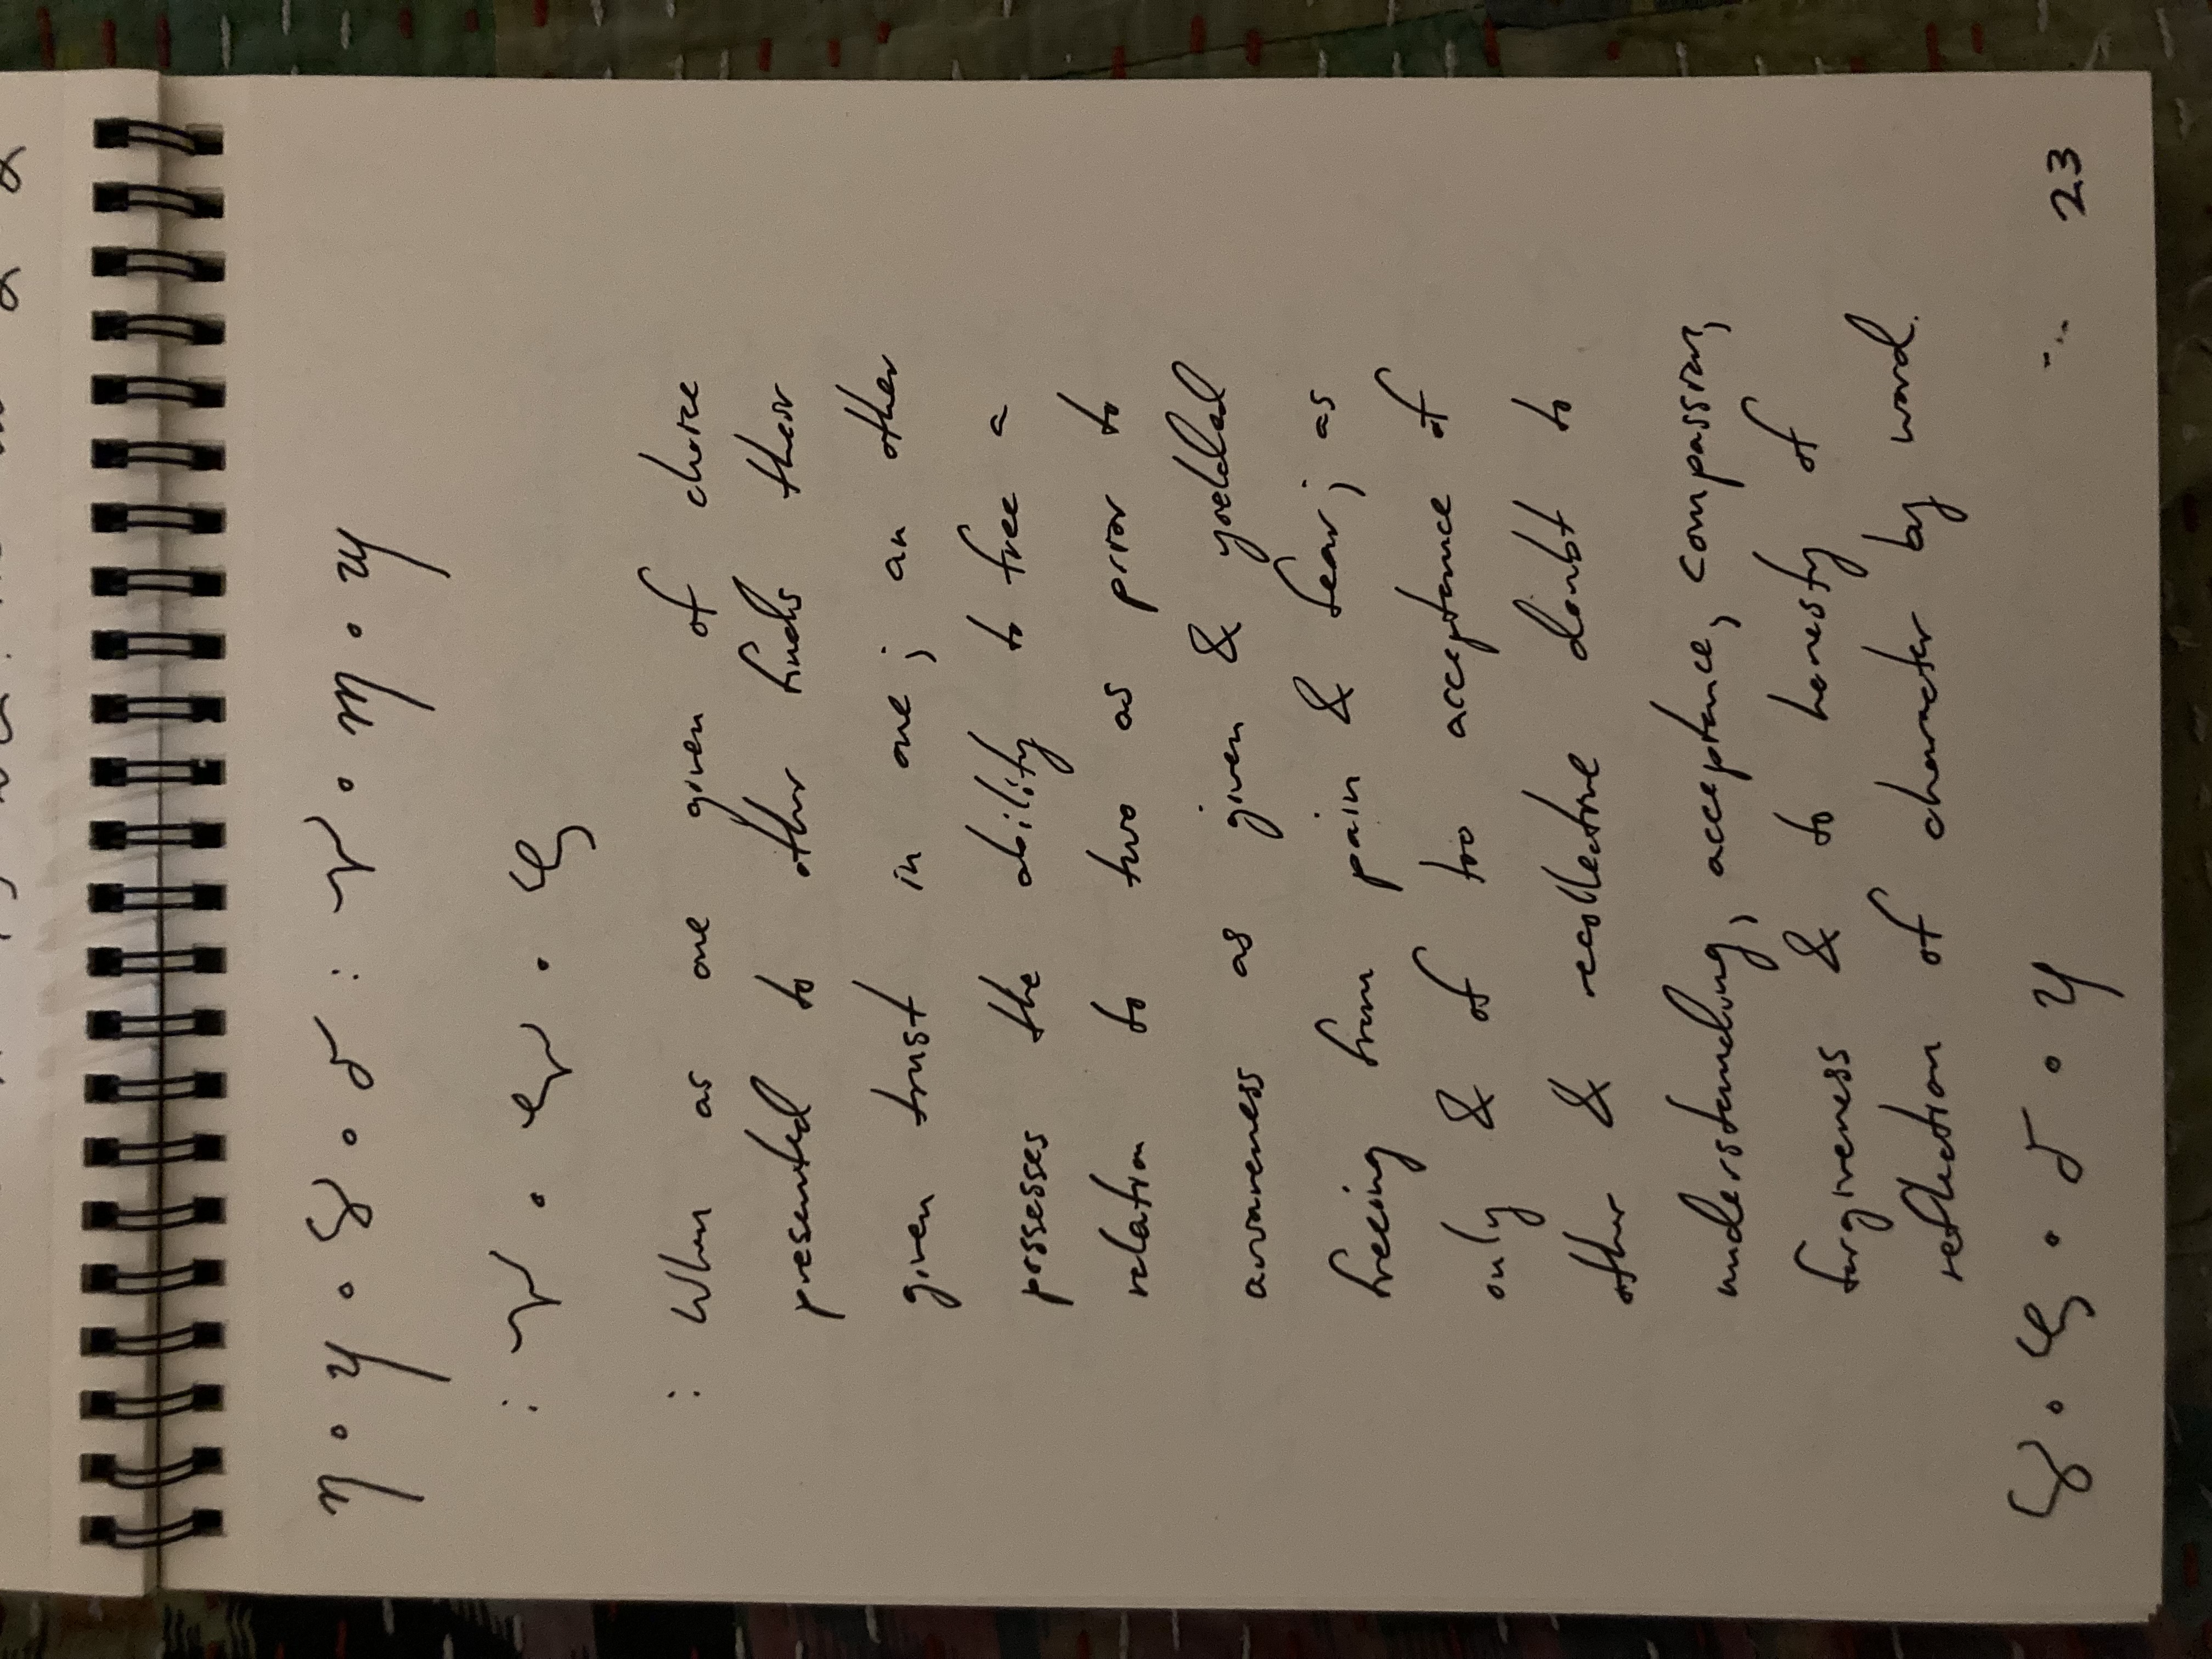 : When as one given of choice
presented to other finds their
given trust in one; an other
possesses the ability to free a
relation to two as prior to
awareness as given & yielded
freeing from pain & fear; as
only & of too acceptance of
other & recollective doubt to
understanding, acceptance, compassion,
forgiveness & to honesty of
reflection of character by word.
23